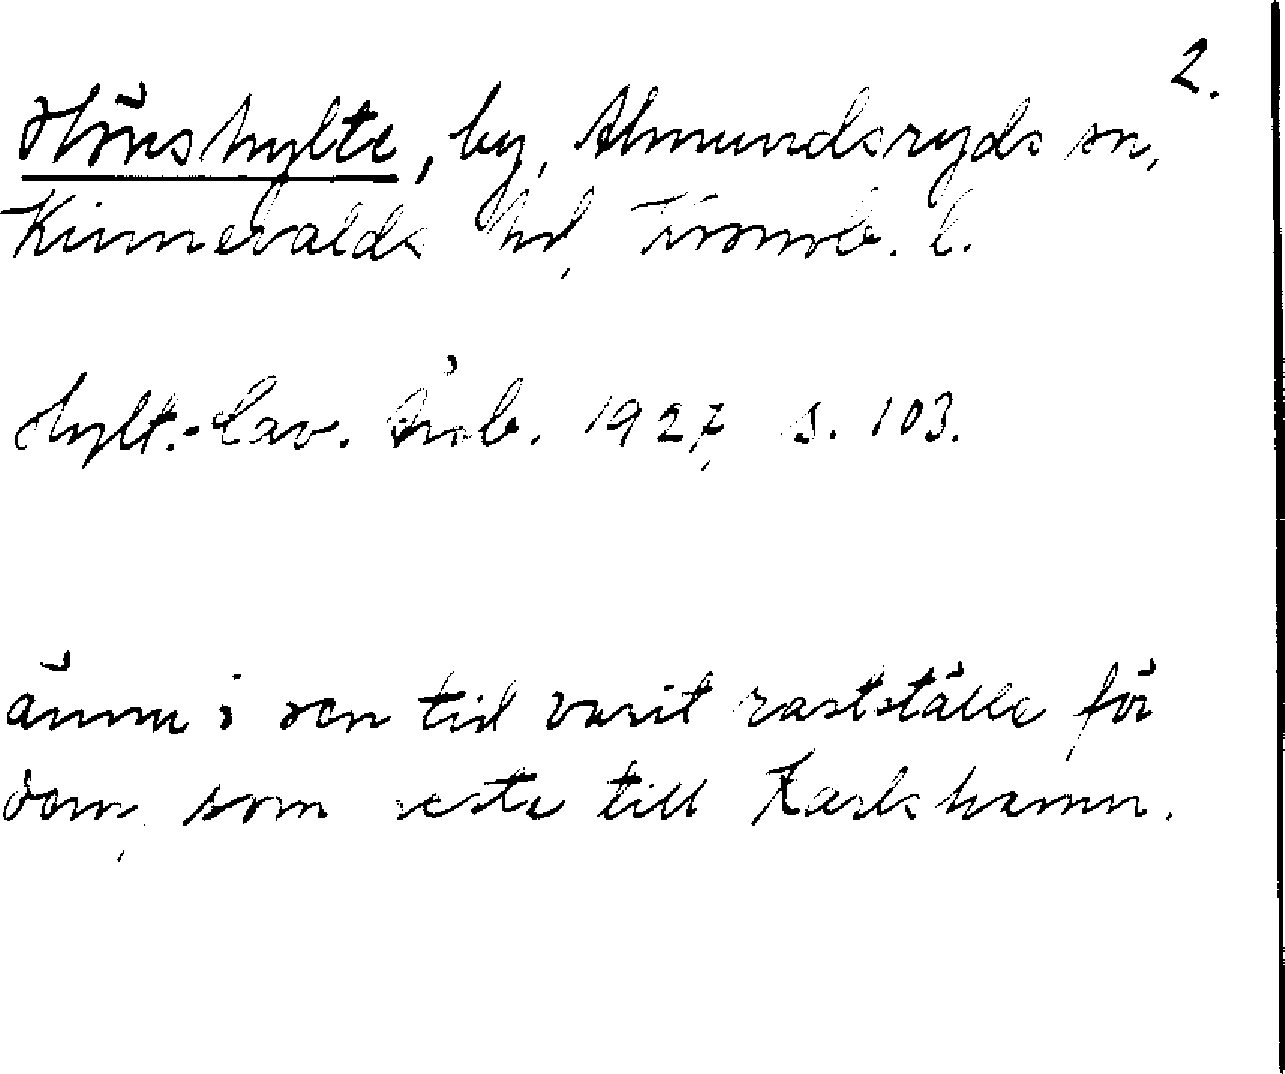 2.
Hönshylte, by, Almundsryds sn,
Kinnevalds hd, Kronob. l.
Hylt.-Cav. Årsb. 1927, s. 103.
ännu i sen tid varit rastställe för
dem, som reste till Karlshamn.